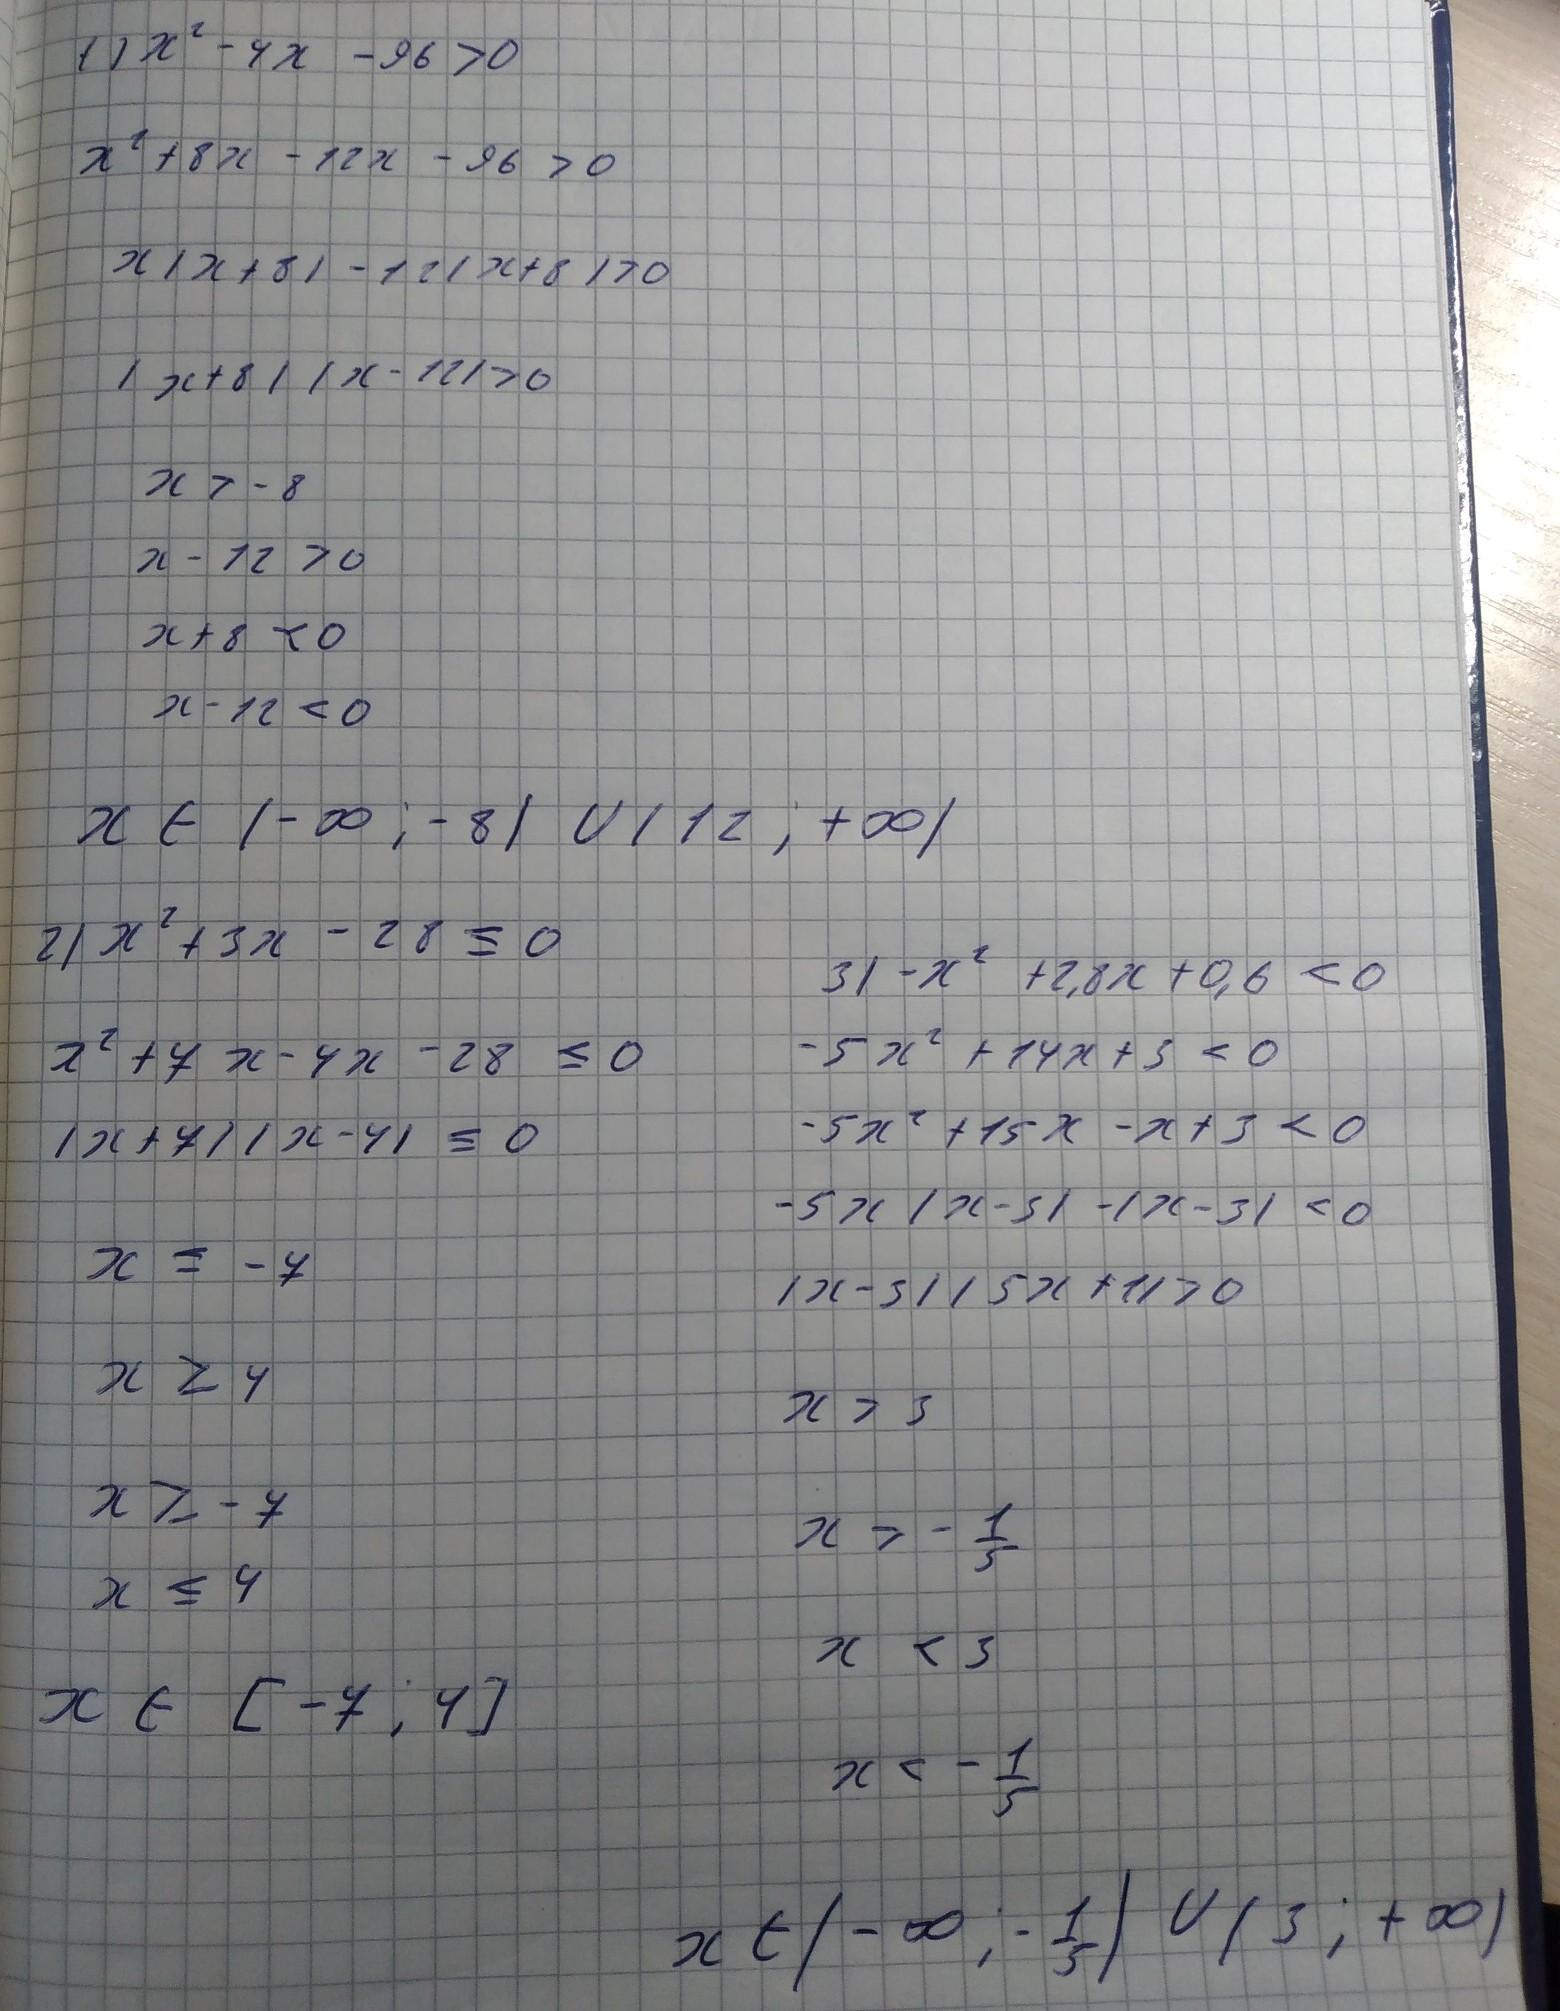 1) x² - 4x - 96 > 0
x² + 8x - 12x - 96 > 0
x(x+8) - 12(x+8) > 0
(x+8)(x-12) > 0
x > -8
x - 12 > 0
x+8 < 0
x - 12 < 0
x ∈ (-∞; -8) ∪ (12; +∞)
2) x² + 3x - 28 ≤ 0
x² + 7x - 4x - 28 ≤ 0
(x+7)(x-4) ≤ 0
x ≤ -7
x ≥ 4
x ≥ -7
x ≤ 4
x ∈ [-7; 4]
3) -x² + 2,8x + 0,6 < 0
-5x² + 14x + 3 < 0
-5x² + 15x - x + 3 < 0
-5x(x-3) - (x-3) < 0
(x-3)(5x+1) > 0
x > 3
x > -1/5
x < 3
x < -1/5
x ∈ (-∞; -1/5) ∪ (3; +∞)